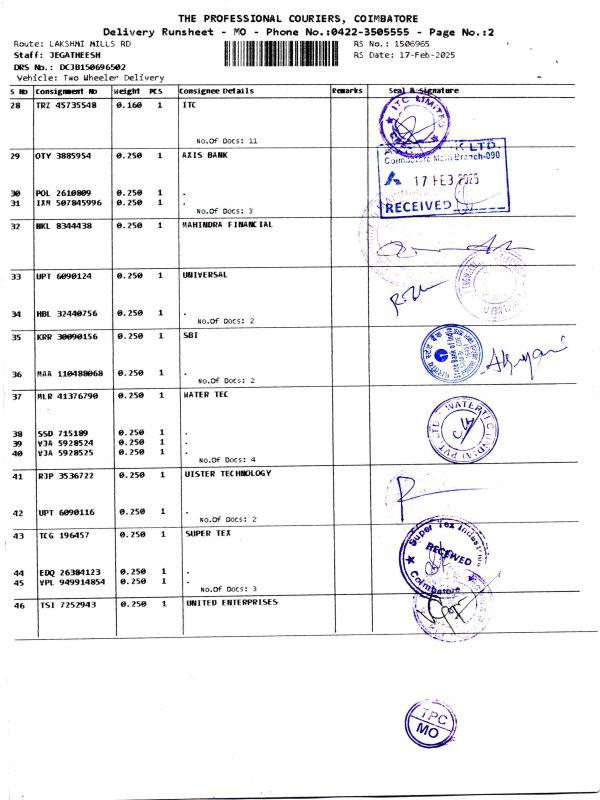 THE PROFESSIONAL COURIERS, COIMBATORE
Delivery Runsheet - MO - Phone No.:0422-3505555 - Page No.:2
Route: LAKSHMI MILLS RD RS No.: 1506965
Staff: JEGATHEESH RS Date: 17-Feb-2025
DRS No.: DCJB150696502
Vehicle: Two Wheeler Delivery
S No Consignment No Weight PCS Consignee Details Remarks Seal & Signature
28 TRZ 45735548 0.160 1 ITC
ITC LIMITED
No.Of Docs: 11
29 OTY 3885954 0.250 1 AXIS BANK
K LTD.
Coimbatore Main Branch-090
17 FEB 2025
RECEIVED
30 POL 2610809 0.250 1 .
31 IXM 507845996 0.250 1 .
No.Of Docs: 3
32 NKL 8344438 0.250 1 MAHINDRA FINANCIAL
33 UPT 6090124 0.250 1 UNIVERSAL
34 HBL 32440756 0.250 1 .
No.Of Docs: 2
35 KRR 30090156 0.250 1 SBI
36 MAA 110488068 0.250 1 .
No.Of Docs: 2
37 MLR 41376790 0.250 1 WATER TEC
WATERTEC (INDIA) PVT. LTD.
38 SSD 715189 0.250 1 .
39 VJA 5928524 0.250 1 .
40 VJA 5928525 0.250 1 .
No.Of Docs: 4
41 RJP 3536722 0.250 1 UISTER TECHNOLOGY
42 UPT 6090116 0.250 1 .
No.Of Docs: 2
43 TCG 196457 0.250 1 SUPER TEX
Super Tex Industries
RECEIVED
Coimbatore
44 EDQ 26384123 0.250 1 .
45 VPL 949914854 0.250 1 .
No.Of Docs: 3
46 TSI 7252943 0.250 1 UNITED ENTERPRISES
TPC
MO